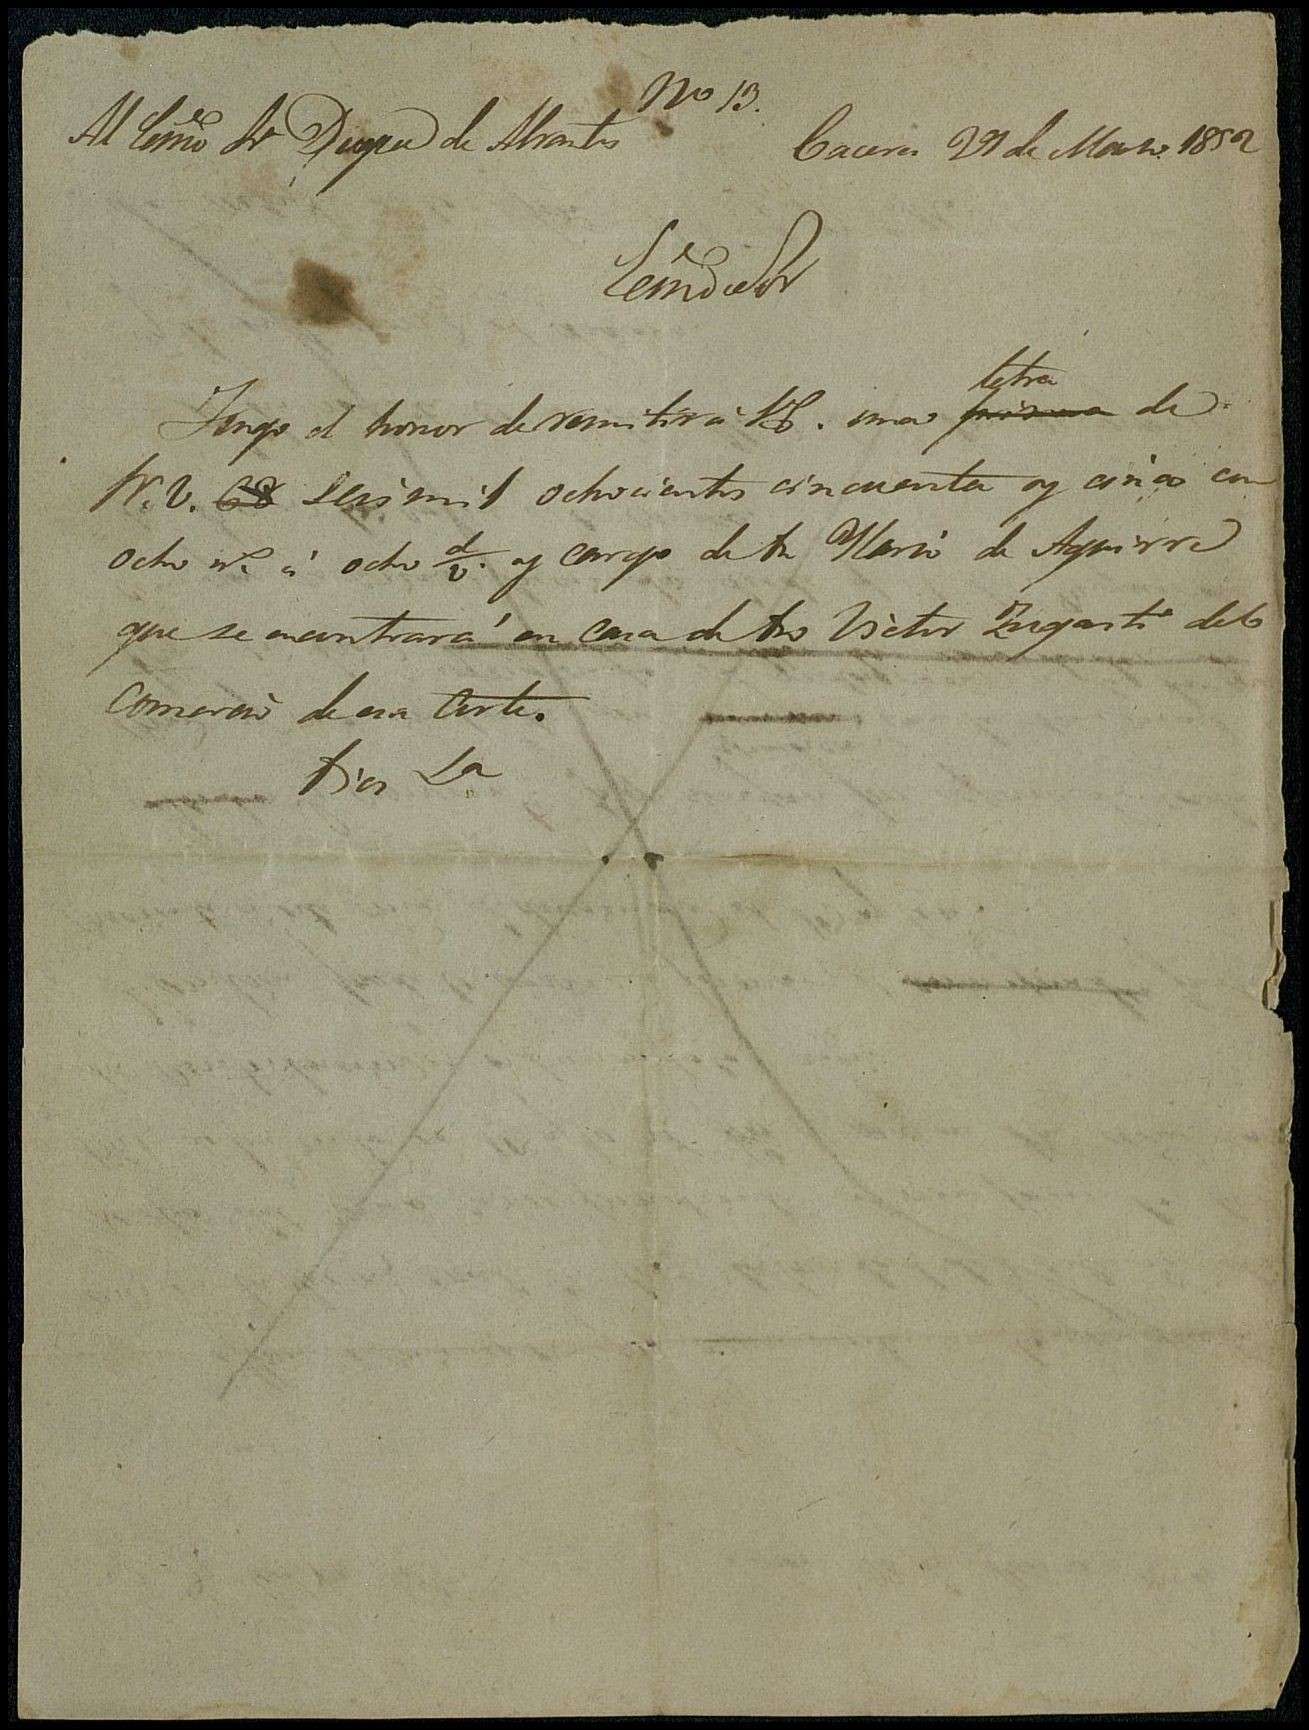 No 13.
Al Exmo Sr Duque de Abrantes
Caceres 29 de Marzo 1852
Exmo Sor
Tengo el honor de remitir á V.E. una letra de
R. V. 68 seis mil ochocientos cincuenta y cinco con
ocho m.s á ocho d/v. y cargo de Dn Mario de Aguirre
que se encontrará en casa de Dn Victor Zugasti del
comercio de esa Corte.
Dios La